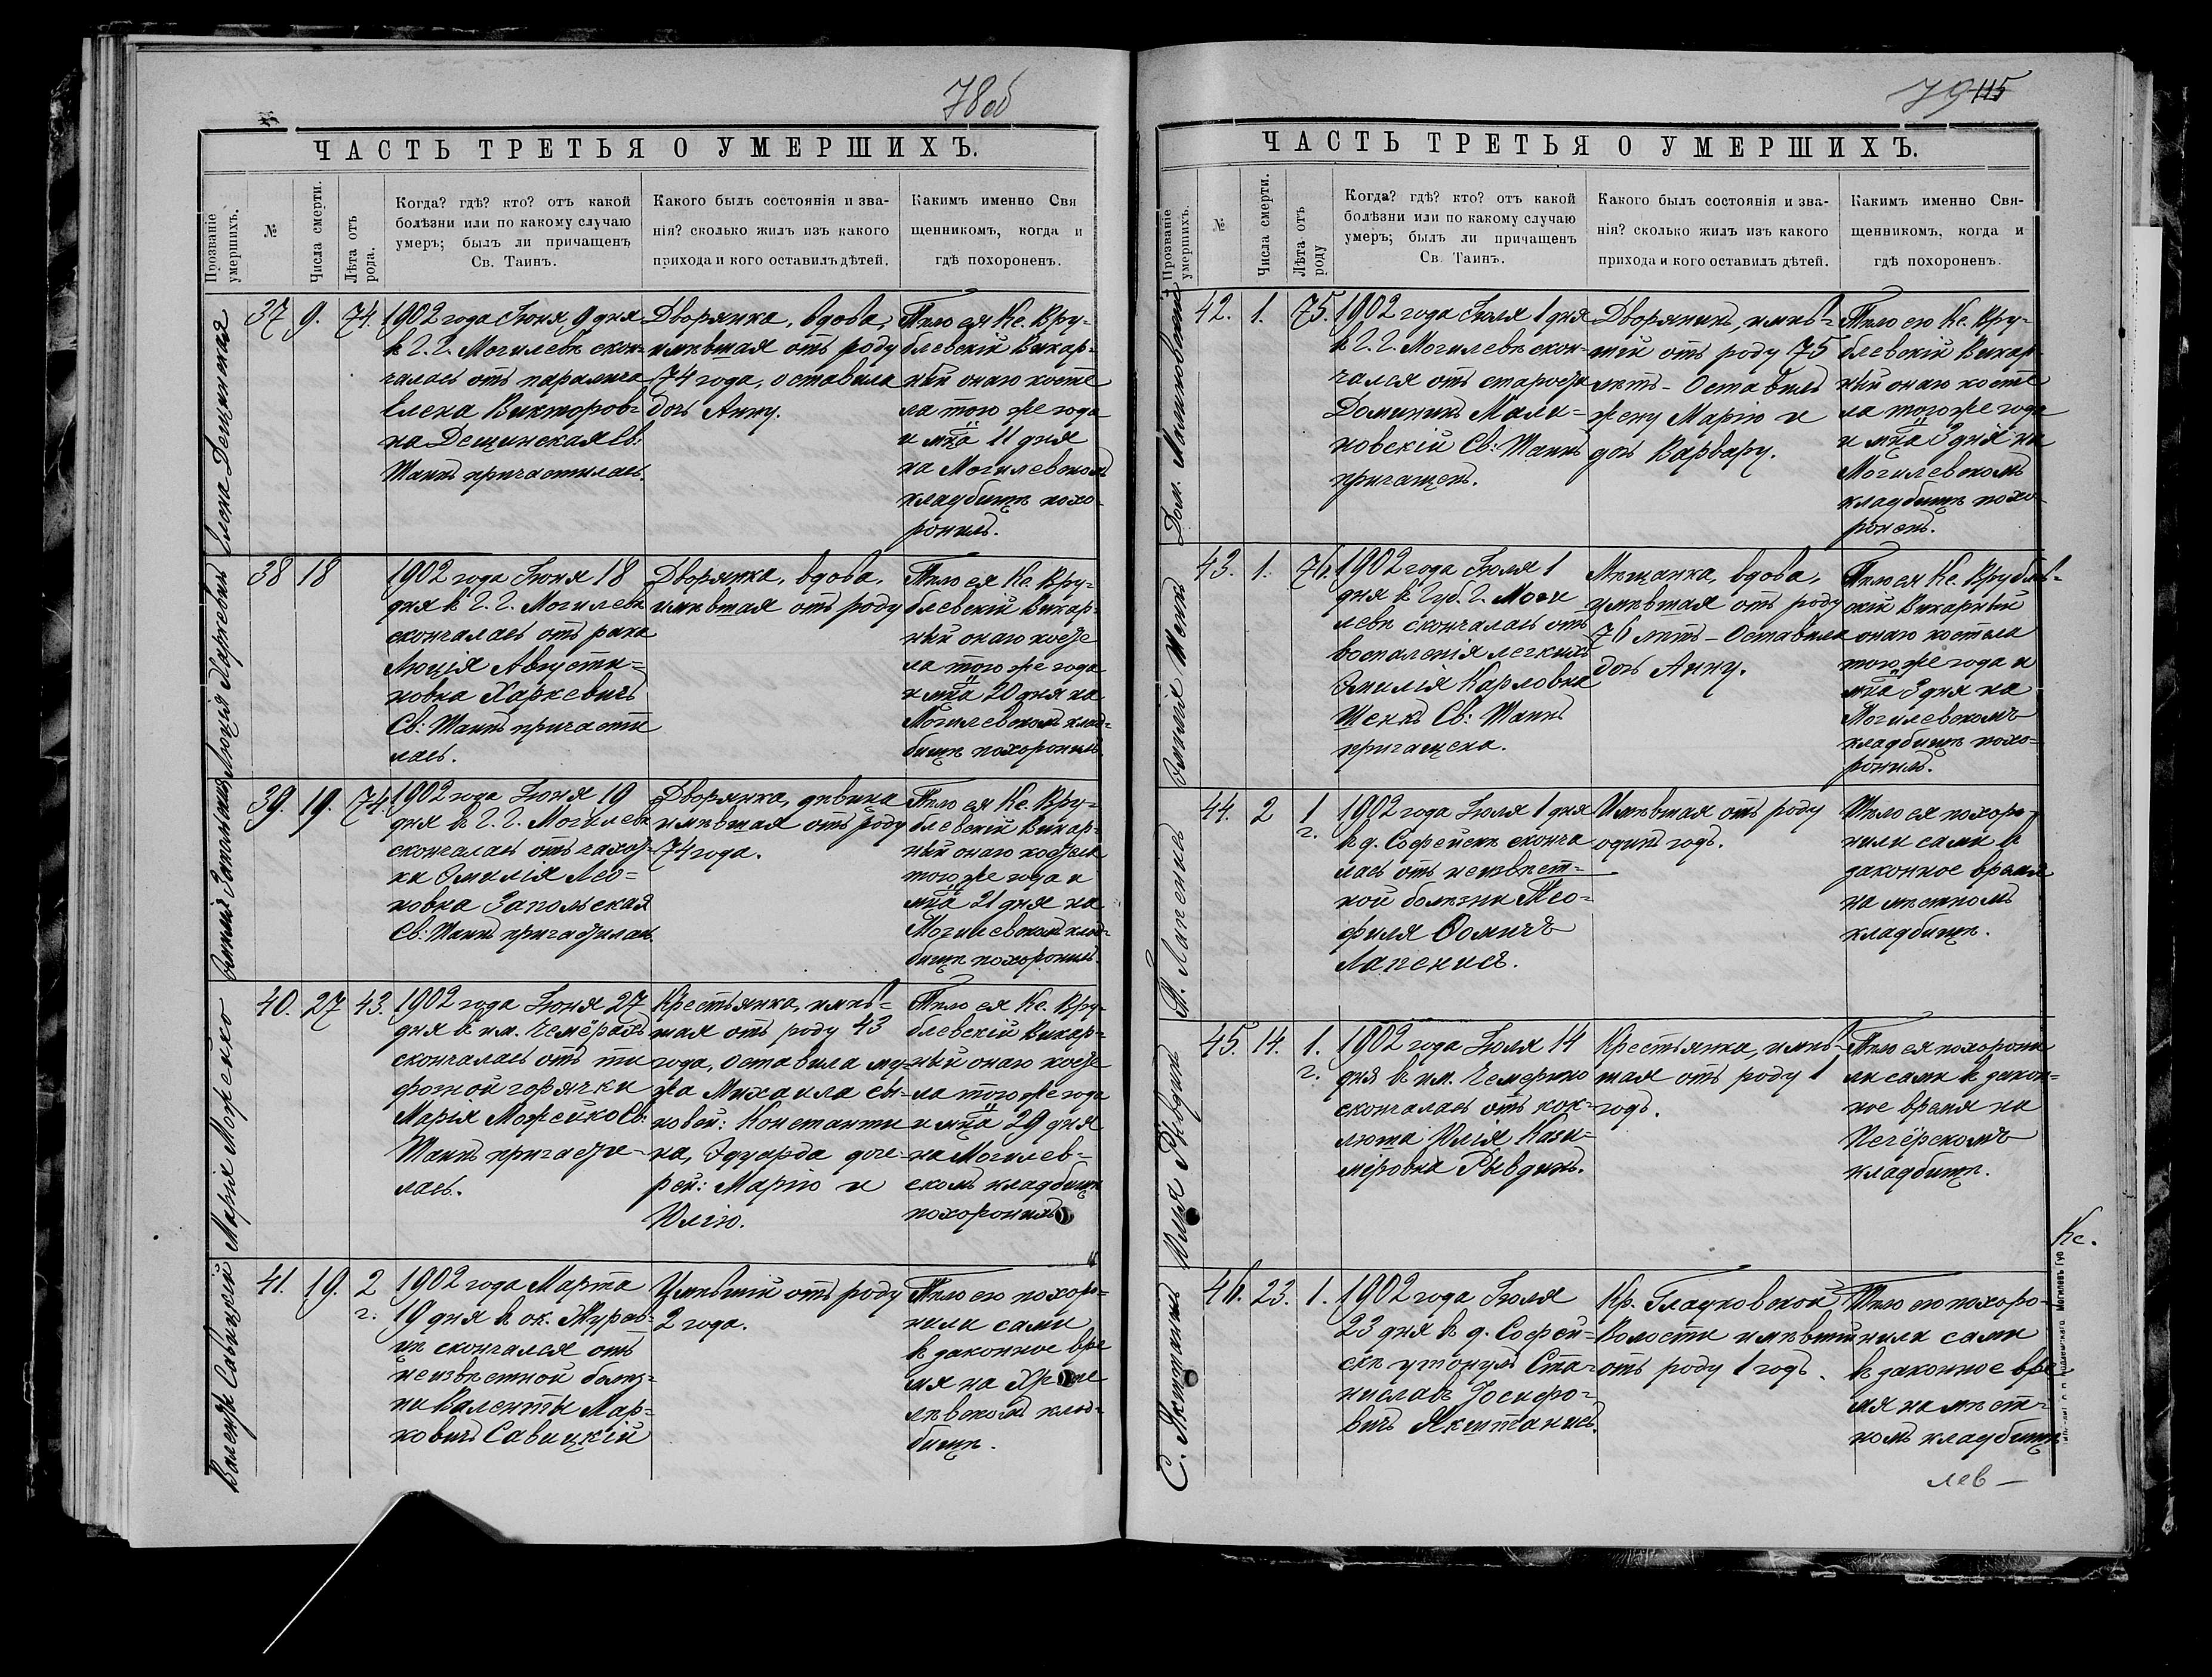 78 об
ЧАСТЬ ТРЕТЬЯ О УМЕРШИХЪ.
Прозваніе умершихъ.
№
Числа смерти.
Лѣта отъ рода.
Когда? гдѣ? кто? отъ какой
болѣзни или по какому случаю
умеръ; былъ ли причащенъ
Св. Таинъ.
Какого былъ состоянія и зва-
нія? сколько жилъ изъ какого
прихода и кого оставилъ дѣтей.
Какимъ именно Свя
щенникомъ, когда и
гдѣ похороненъ.
Елена Дещинская
37
9.
74.
1902 года Іюня 9 дня
въ Г. Г. Могилевѣ скон-
чалась отъ паралича
Елена Викторов-
на Дещинская Св.
Таинъ причастилась.
Дворянка, вдова,
имѣвшая отъ роду
74 года, оставила
дочь Анну.
Тѣло ея Кс. Вру-
блевскій Викар-
ный онаго косте
ла того же года
и мца 11 дня
на Могилевскомъ
кладбищѣ похо-
ронилъ.
Люція Харкевичъ
38
18
1902 года Іюня 18
дня въ Г. Г. Могилевѣ
скончалась отъ рака
Люція Августи-
новна Харкевичъ
Св: Таинъ причасти
лась.
Дворянка, вдова,
имѣвшая отъ роду
Тѣло ея Кс. Вру-
блевскій Викар-
ный онаго косте
ла того же года
и мца 20 дня на
Могилевскомъ клад-
бищѣ похоронилъ.
Эмилія Запольская
39.
19.
74.
1902 года Іюня 19
дня въ Г. Г. Могилевѣ
скончалась отъ чахот-
ки Эмилія Лео-
новна Запольская
Св: Таинъ причастилась.
Дворянка, дѣвица
имѣвшая отъ роду
74 года.
Тѣло ея Кс. Вру-
блевскій Викар-
ный онаго костела
того же года и
мца 21 дня на
Могилевскомъ клад-
бищѣ похоронилъ.
Марія Можейко
40.
27
43.
1902 года Іюня 27
дня въ им. Чемёрахъ
скончалась отъ ти
фозной горячки
Марія Можейко Св:
Таинъ причасти-
лась.
Крестьянка, имѣв-
шая отъ роду 43
года, оставила му-
жа Михаила сы-
новей: Константи
на, Эдуарда доче-
рей: Марію и
Юлію.
Тѣло ея Кс. Вру-
блевскій Викар-
ный онаго косте
ла того же года
и мца 29 дня
на Могилев-
скомъ кладбищѣ
похоронилъ
Валентъ Савицкій
41.
19.
2 г.
1902 года Марта
19 дня въ ок. Журав-
цѣ скончался отъ
неизвѣстной болѣз-
ни Валентъ Мар-
ковичъ Савицкій
Имѣвшій отъ роду
2 года.
Тѣло его похоро-
нили сами
въ законное вре
мя на
кладбищѣ.
79 115
ЧАСТЬ ТРЕТЬЯ О УМЕРШИХЪ.
Прозваніе умершихъ.
№
Числа смерти.
Лѣта отъ роду
Когда? гдѣ? кто? отъ какой
болѣзни или по какому случаю
умеръ; былъ ли причащенъ
Св. Таинъ.
Какого былъ состоянія и зва-
нія? сколько жилъ изъ какого
прихода и кого оставилъ дѣтей.
Какимъ именно Свя-
щенникомъ, когда и
гдѣ похороненъ.
Дом. Малиновскій
42.
1.
75.
1902 года Іюля 1 дня
въ Г. Г. Могилевѣ скон-
чался отъ старости
Доминикъ Мали-
новскій Св: Таинъ
причащенъ.
Дворянинъ, имѣв-
шій отъ роду 75
лѣтъ - Оставилъ
жену Марію и
дочь Варвару.
Тѣло его Кс. Вру-
блевскій Викар
ный онаго косте
ла того же года
и мца 3 дня на
Могилевскомъ
кладбищѣ похо-
роненъ.
Эмилія Шенкъ
43.
1.
76.
1902 года Іюля 1
дня въ Губ. Г. Моги
левѣ скончалась отъ
воспаленія легкихъ
Эмилія Карловна
Шенкъ Св: Таинъ
причащена.
Мѣщанка, вдова,
имѣвшая отъ роду
76 лѣтъ - Оставила
дочь Анну.
Тѣло ея Кс. Врублев-
скій Викарный
онаго костела
того же года и
мца 3 дня на
Могилевскомъ
кладбищѣ похо-
ронилъ.
Т. Лапенисъ
44.
2
1 г.
1902 года Іюля 1 дня
въ д. Софейскѣ сконча
лась отъ неизвѣст-
ной болѣзни Тео-
филя Ѳомичъ
Лапенисъ.
Имѣвшая отъ роду
одинъ годъ.
Тѣло ея похоро-
нили сами въ
законное время
на мѣстномъ
кладбищѣ.
Юлія Рывдинъ
45.
14.
1. г.
1902 года Іюля 14
дня въ им. Чемерино
скончалась отъ кок-
люша Юлія Кази-
міровна Рывдинъ.
Крестьянка, имѣв-
шая отъ роду 1
годъ.
Тѣло ея похорони
ли сами въ закон-
ное время на
Печёрскомъ
кладбищѣ.
С. Якштанисъ
46.
23.
1.
1902 года Іюля
23 дня въ д. Софей-
скѣ утонулъ Ста-
ниславъ Іосифо-
вичъ Якштанисъ.
Кр. Глауковской
Волости имѣвшій
отъ роду 1 годъ.
Тѣло его похоро-
нили сами
въ законное вре
мя на мѣст-
номъ кладбищѣ
Кс.
лев —